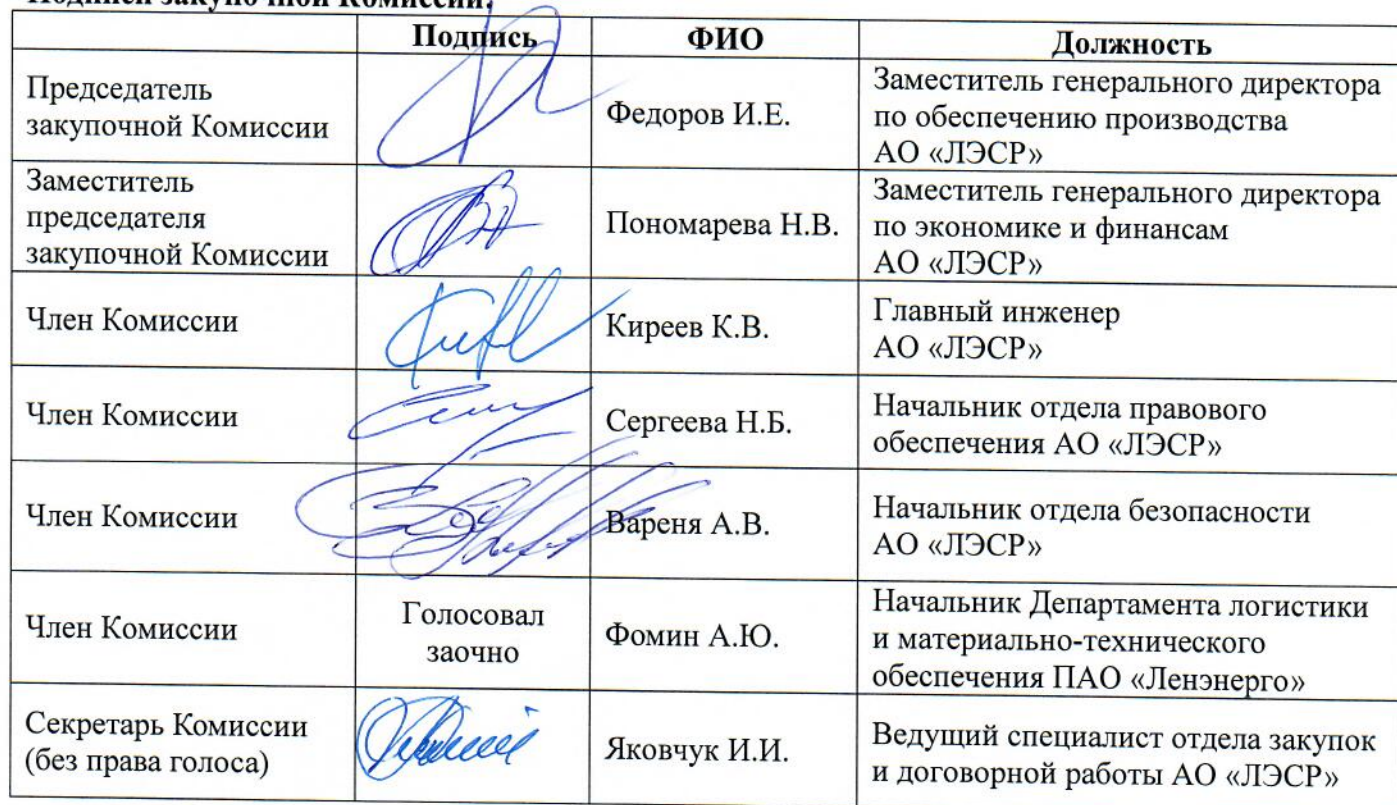 Подписи закупочной Комиссии:
Подпись ФИО Должность
Председатель
закупочной Комиссии
Федоров И.Е.
Заместитель генерального директора
по обеспечению производства
АО «ЛЭСР»
Заместитель
председателя
закупочной Комиссии
Пономарева Н.В.
Заместитель генерального директора
по экономике и финансам
АО «ЛЭСР»
Член Комиссии
Киреев К.В.
Главный инженер
АО «ЛЭСР»
Член Комиссии
Сергеева Н.Б.
Начальник отдела правового
обеспечения АО «ЛЭСР»
Член Комиссии
Вареня А.В.
Начальник отдела безопасности
АО «ЛЭСР»
Член Комиссии
Голосовал
заочно
Фомин А.Ю.
Начальник Департамента логистики
и материально-технического
обеспечения ПАО «Ленэнерго»
Секретарь Комиссии
(без права голоса)
Яковчук И.И.
Ведущий специалист отдела закупок
и договорной работы АО «ЛЭСР»